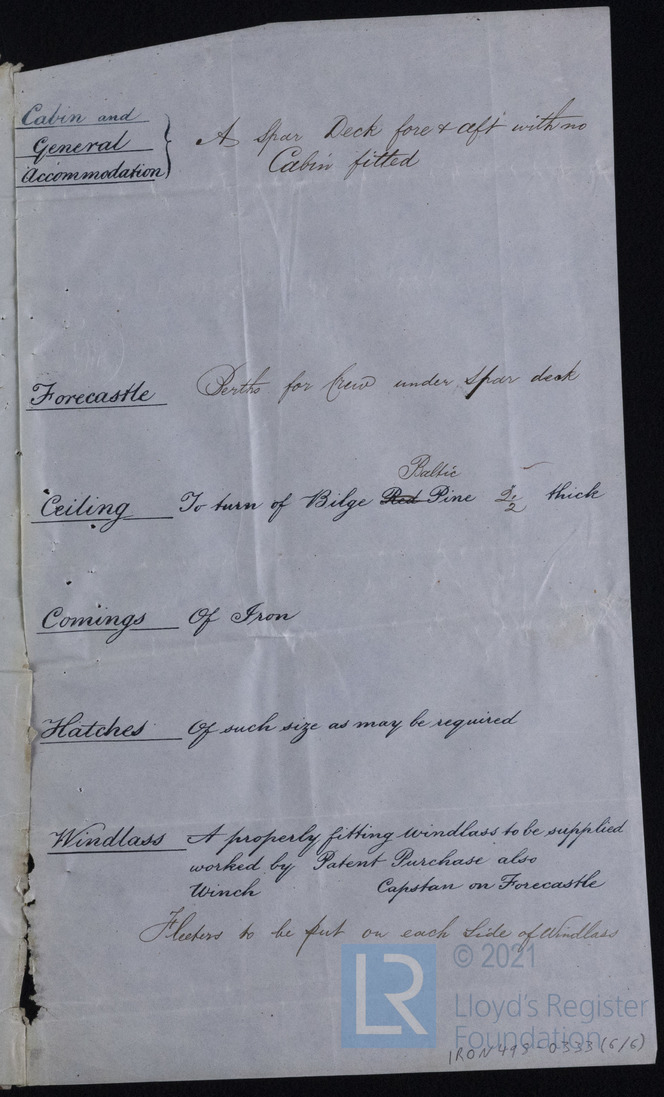 Cabin and
General
Accommodation } A Spar Deck fore & aft with no
Cabin fitted
Forecastle Berths for Crew under Spar deck
Baltic
Ceiling To turn of Bilge Red Pine 2½ thick
Comings Of Iron
Hatches Of such size as may be required
Windlass A properly fitting windlass to be supplied
worked by Patent Purchase also
Winch Capstan on Forecastle
Fleeters to be put on each Side of Windlass
© 2021
LR
Lloyd's Register
Foundation
IRON498-0333 (6/6)